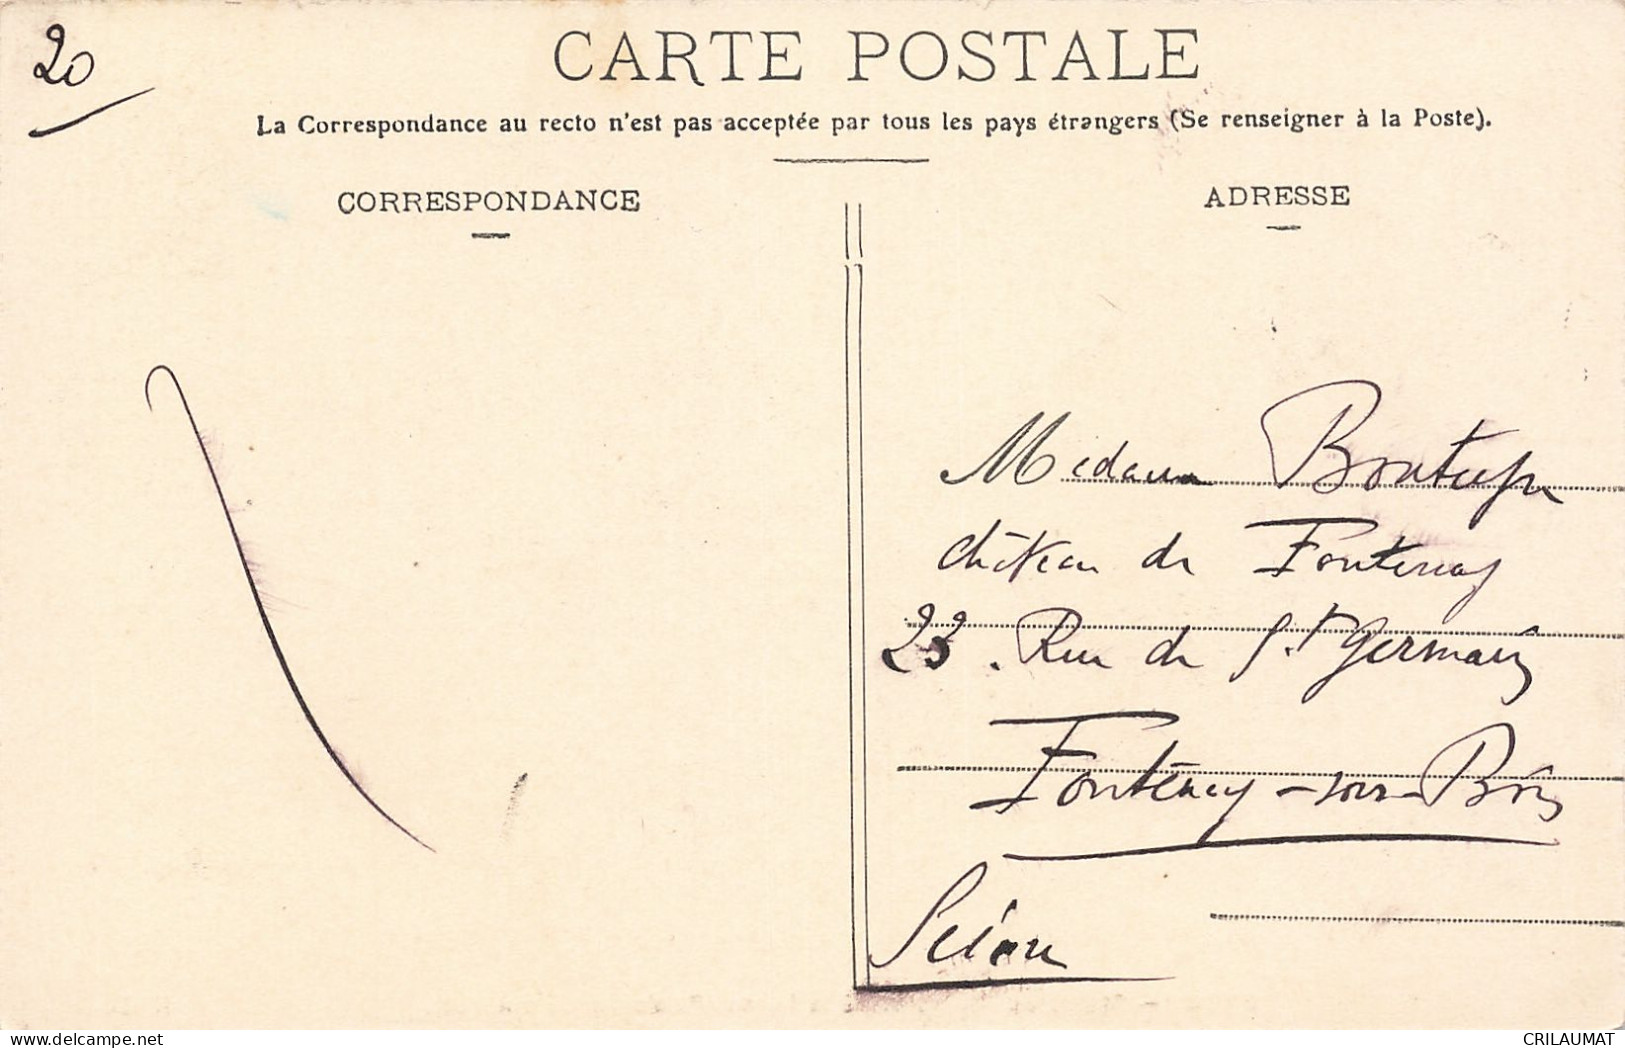 20
CARTE POSTALE
La Correspondance au recto n'est pas acceptée par tous les pays étrangers (Se renseigner à la Poste).
CORRESPONDANCE
ADRESSE
Madame
château de Fontenay
23. Rue de St Germain
Fontenay-sous-Bois
Seine
delcampe.net
CRILAUMAT